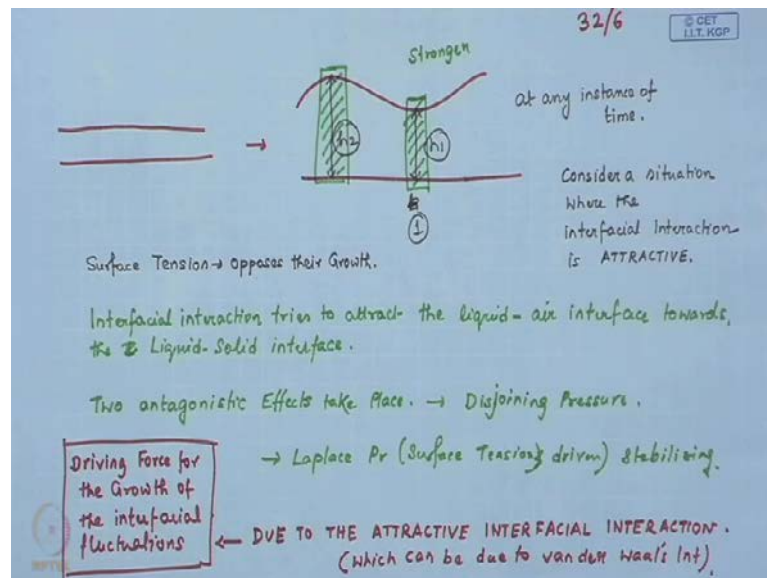 32/6
© CET
I.I.T. KGP
Stronger
h2
h1
1
at any instance of
time.
Consider a situation
where the
interfacial Interaction
is ATTRACTIVE.
Surface Tension → opposes their Growth.
Interfacial interaction tries to attract the liquid-air interface towards,
the Liquid-Solid interface.
Two antagonistic Effects take Place. → Disjoining Pressure.
→ Laplace Pr (Surface Tension driven) stabilizing.
Driving Force for
the Growth of
the interfacial
fluctuations
← DUE TO THE ATTRACTIVE INTERFACIAL INTERACTION.
(which can be due to vander Waal's Int)
NPTEL